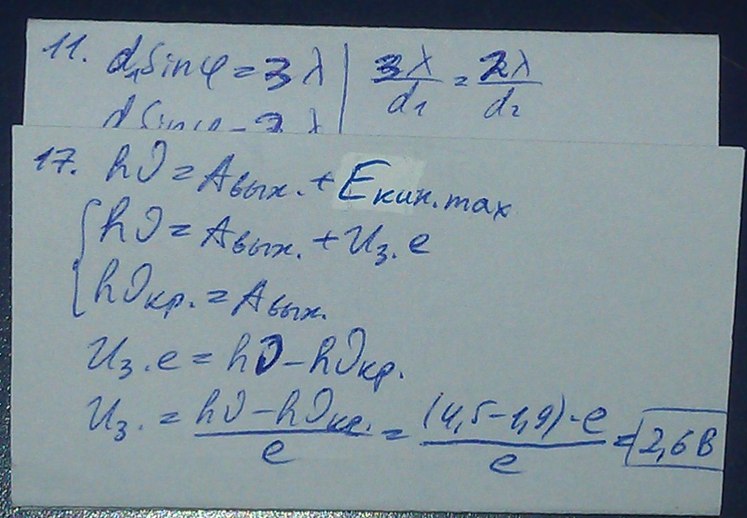 11. d₁ sinφ = 3λ | 3λ/d₁ = 2λ/d₂
d sinφ = 2λ
17. hν = Aвых. + Eкин.max
{ hν = Aвых. + Uз. e
hνкр. = Aвых.
Uз. e = hν – hνкр.
Uз. = (hν – hνкр.)/e = ((4,5–1,9)·e)/e = 2,6 В